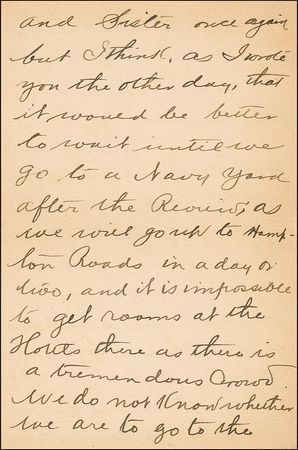 and Sister once again
but I think, as I wrote
you the other day, that
it would be better
to wait until we
go to a Navy Yard
after the Review; as
we will go up to Hamp-
ton Roads in a day or
two, and it is impossible
to get rooms at the
Hotels there as there is
a tremendous Crowd.
We do not Know whether
we are to go to the